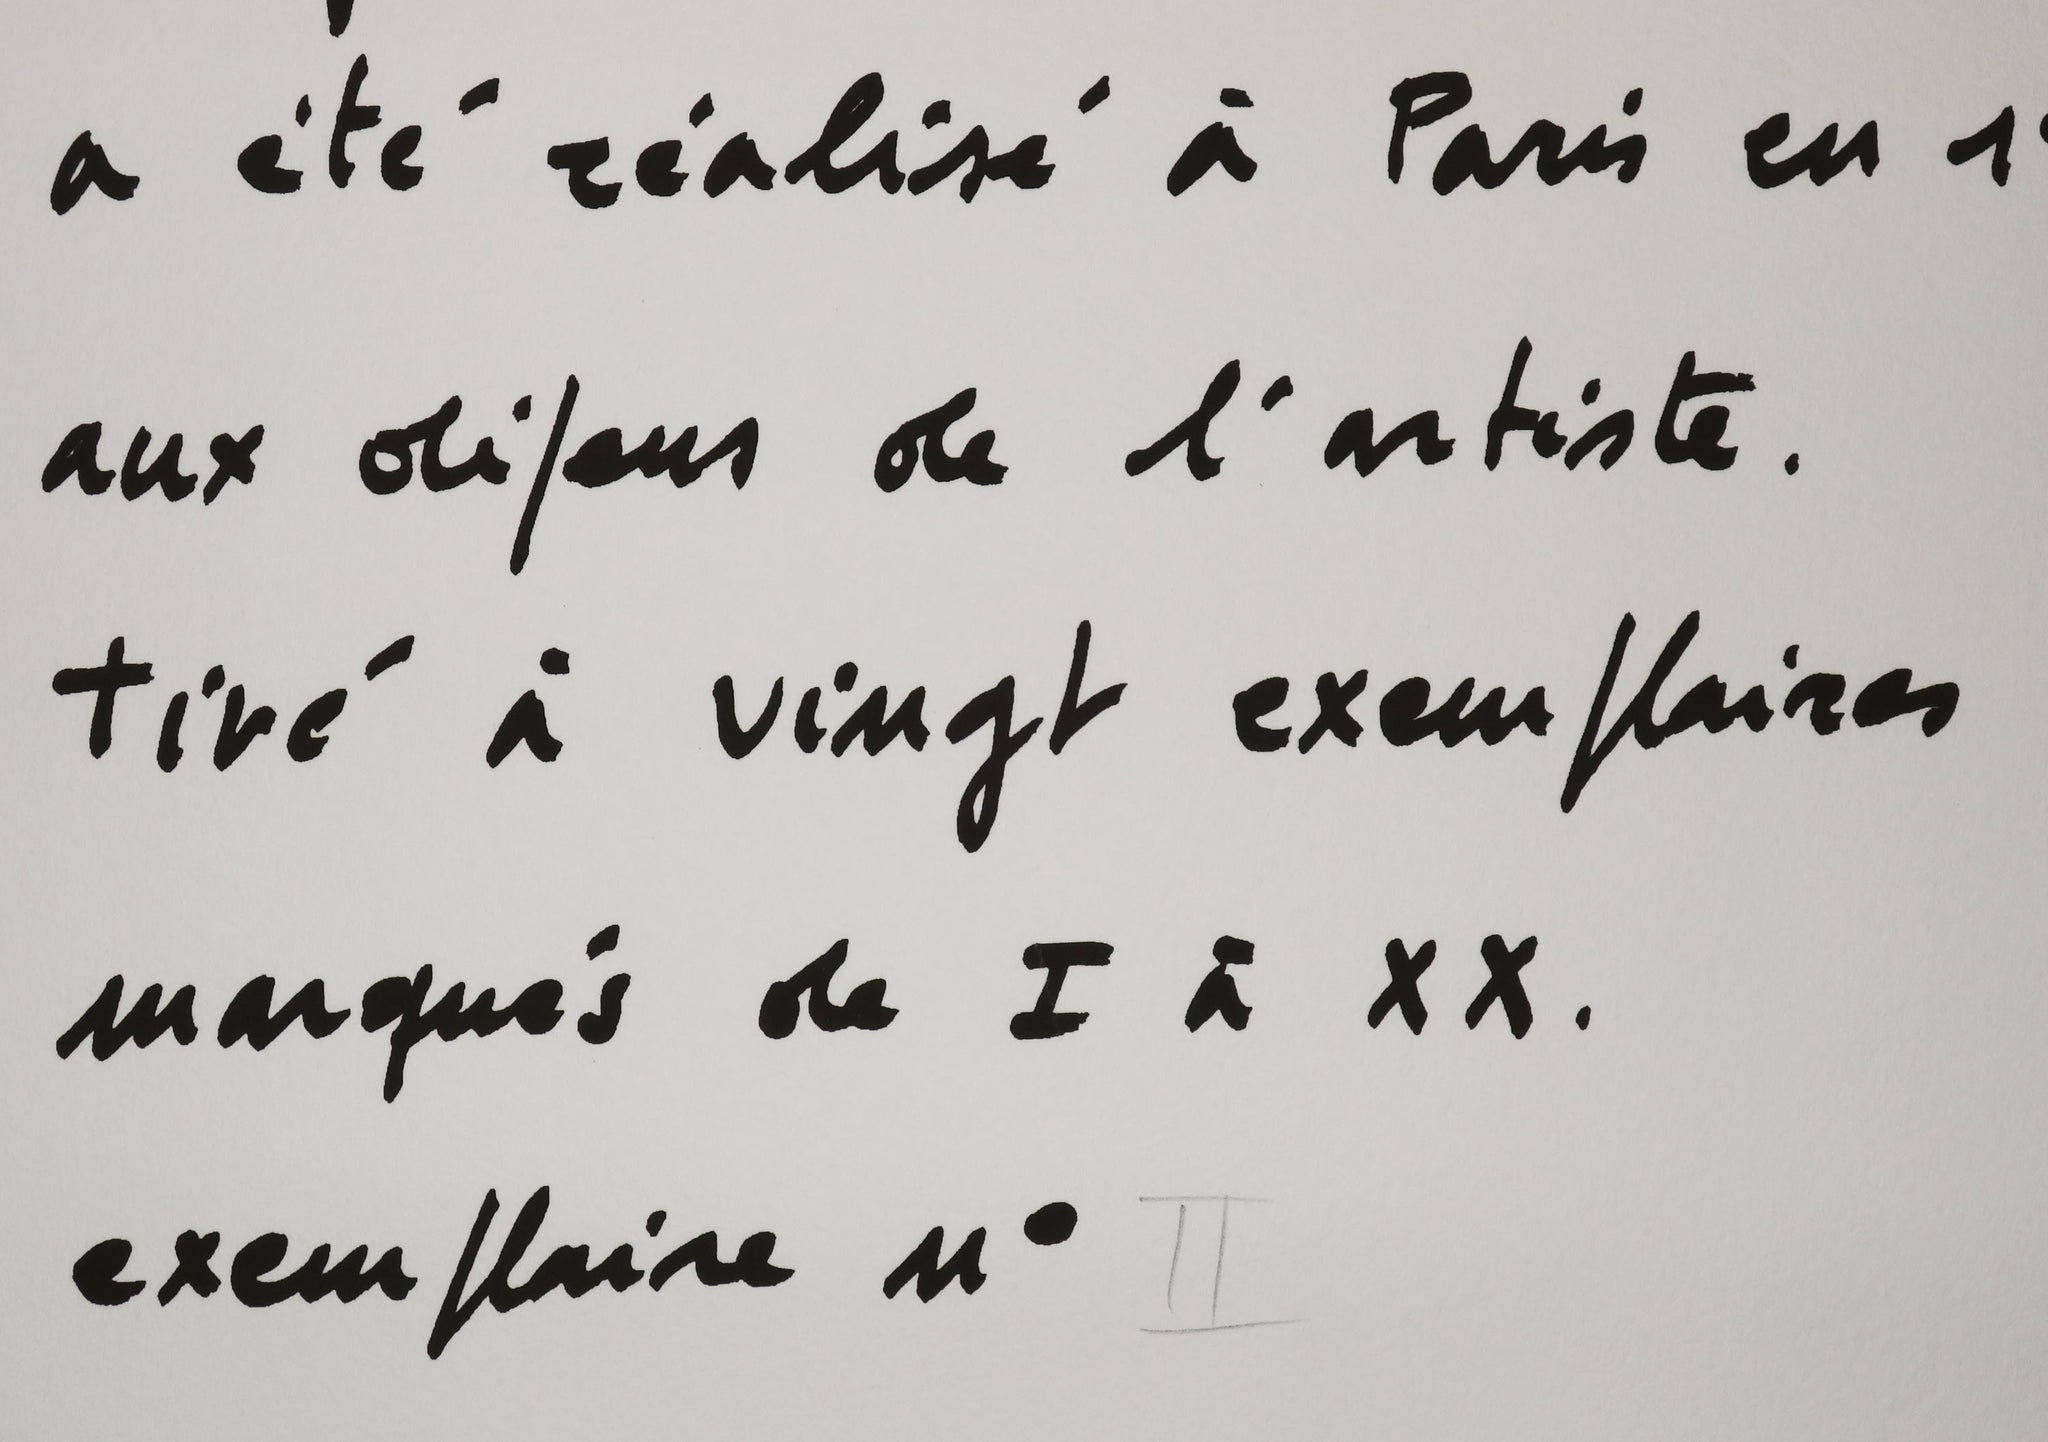 a été réalisé à Paris en 1
aux dépens de l'artiste.
tiré à vingt exemplaires
marqués de I à XX.
exemplaire n° II